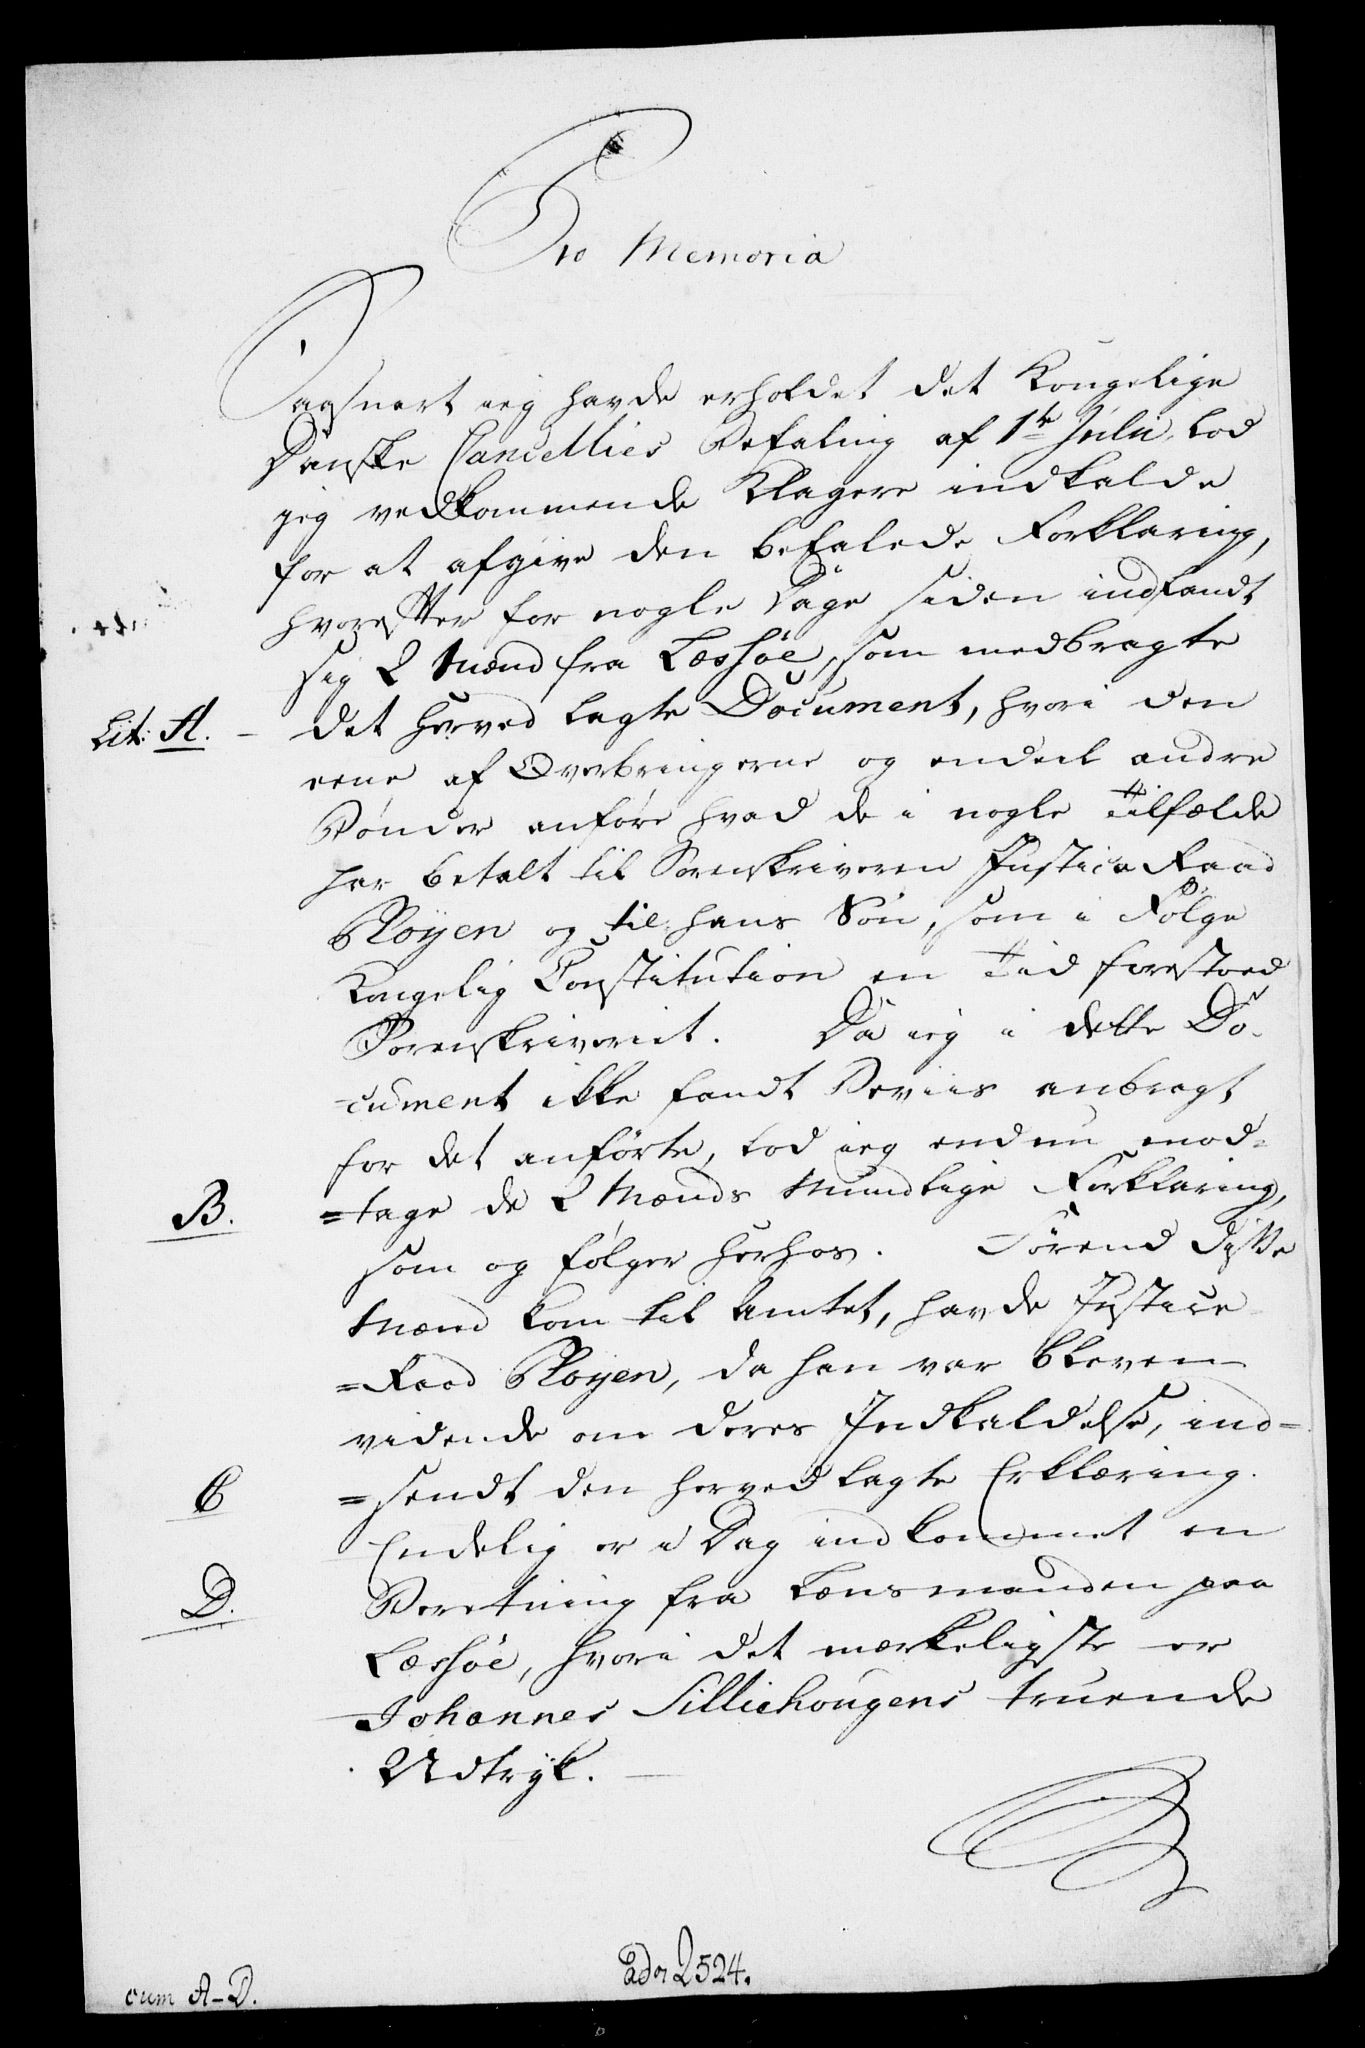 Pro Memoria
Saasnart ieg havde erholdet det Kongelige
Danske Cancellies Befaling af 1ste Julii, lod
jeg vedkommende Klagere indkalde
for at afgive den befalede Forklaring,
hvorefter for nogle Dage siden indfandt
sig 2 Mænd fra Læssøe, som medbragte
Lit: A. – det herved lagte Document, hvori den
eene af Overbringerne og endeel andre
Bønder anføre hvad de i nogle Tilfælde
har betalt til Sorenskriveren Justice Raad
Ployen og til hans Søn, som i Følge
Kongelig Constitution en Tid forestoed
Sorenskriveriet. Da ieg i dette Do-
cument ikke fandt Beviis anbragt
for det anførte, lod ieg endnu mod=
B. =tage de 2 Mænds Mundtlige Forklaring,
som og følger herhos. Førend disse
Mænd kom til Amtet, havde Justice
=Raad Ployen, da han var bleven
vidende om deres Indkaldelse, ind=
C =sendt den herved lagte Erklæring.
Endelig er i Dag indkommet en
D. Beretning fra Lænsmanden paa
Læssøe, hvori det mærkeligste er
Johannes Sillichougens truende
Udtryk. —
2524.
cum A-D.